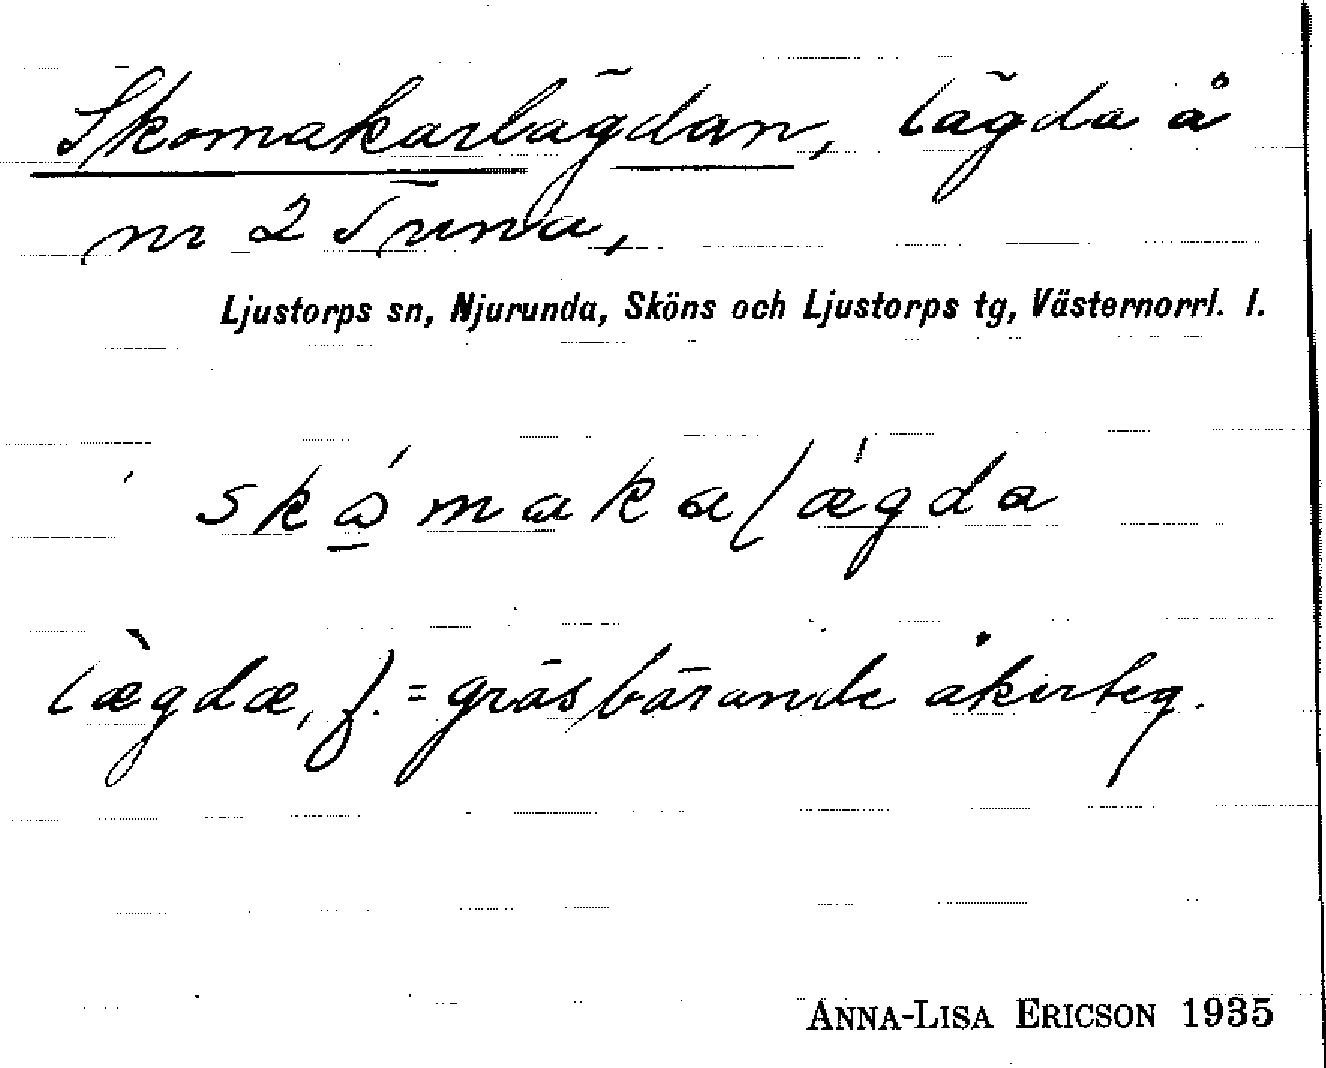 Skomakarlägdan, lägda å
nr 2 Tuna,
Ljustorps sn, Njurunda, Sköns och Ljustorps tg, Västernorrl. l.
skò̱makalǽgda
læ̀gdæ, f. = gräsbärande åkerteg.
ANNA-LISA ERICSON 1935